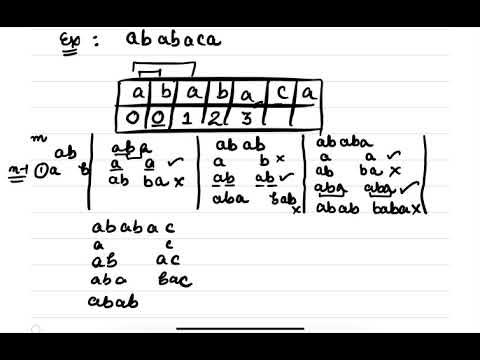 Ex : ababaca
a b a b a c a
0 0 1 2 3
m
n-1
ab
① a b
aba
a a ✓
ab ba x
abab
a b x
ab ab ✓
aba bab x
ababa
a a ✓
ab ba x
aba aba ✓
abab baba x
ababac
a c
ab ac
aba bac
abab